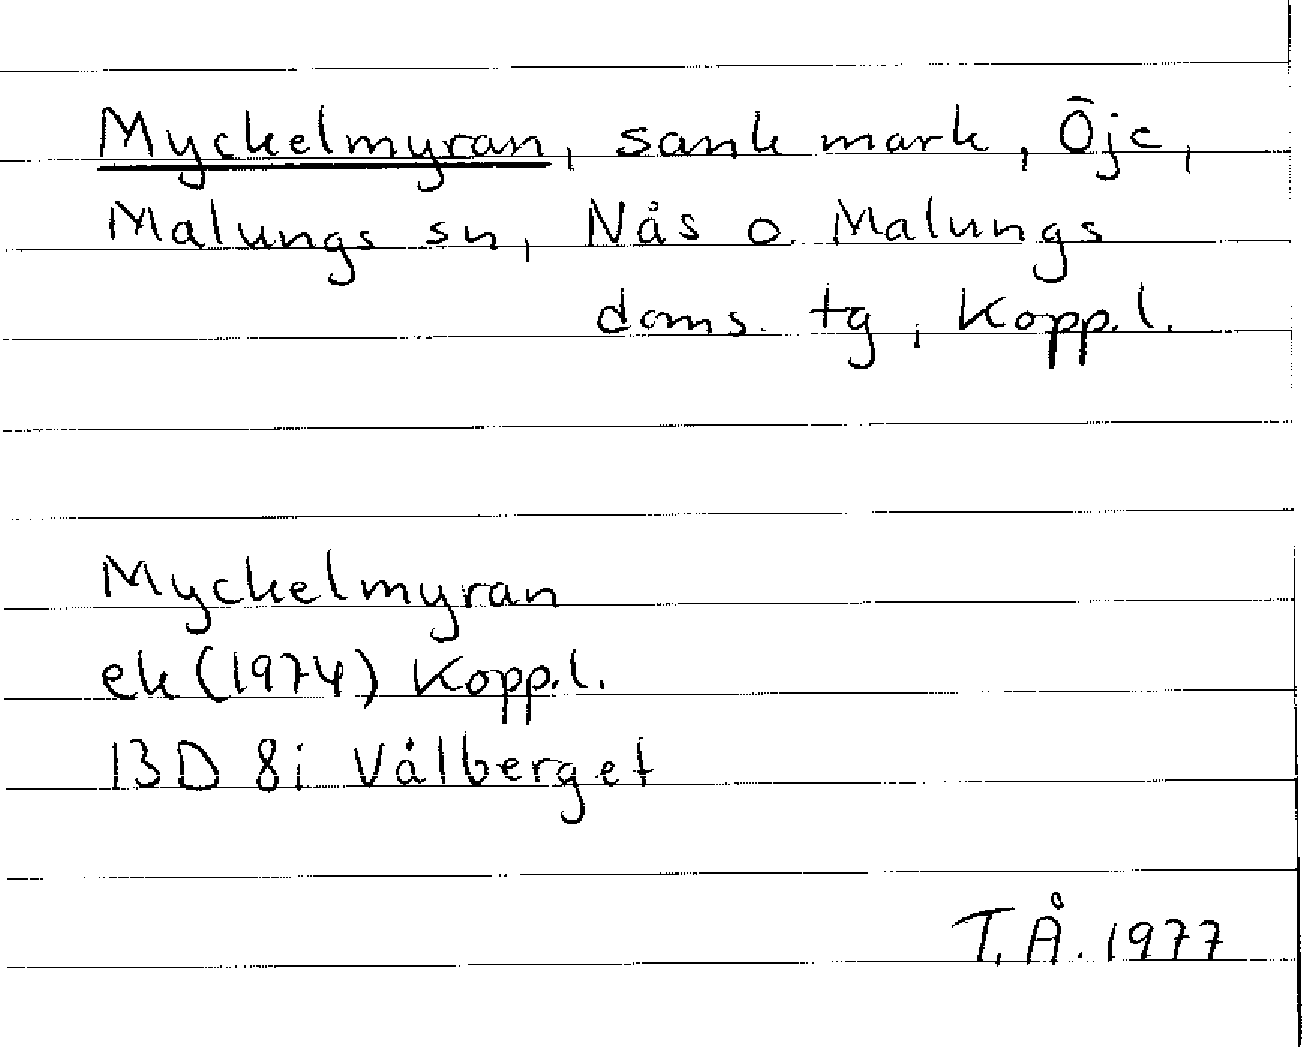 Myckelmyran, sank mark, Öje,
Malungs sn, Nås o. Malungs
doms. tg, Kopp.l.
Myckelmyran
ek (1974) Kopp.l.
13D 8i Vålberget
T.Å. 1977